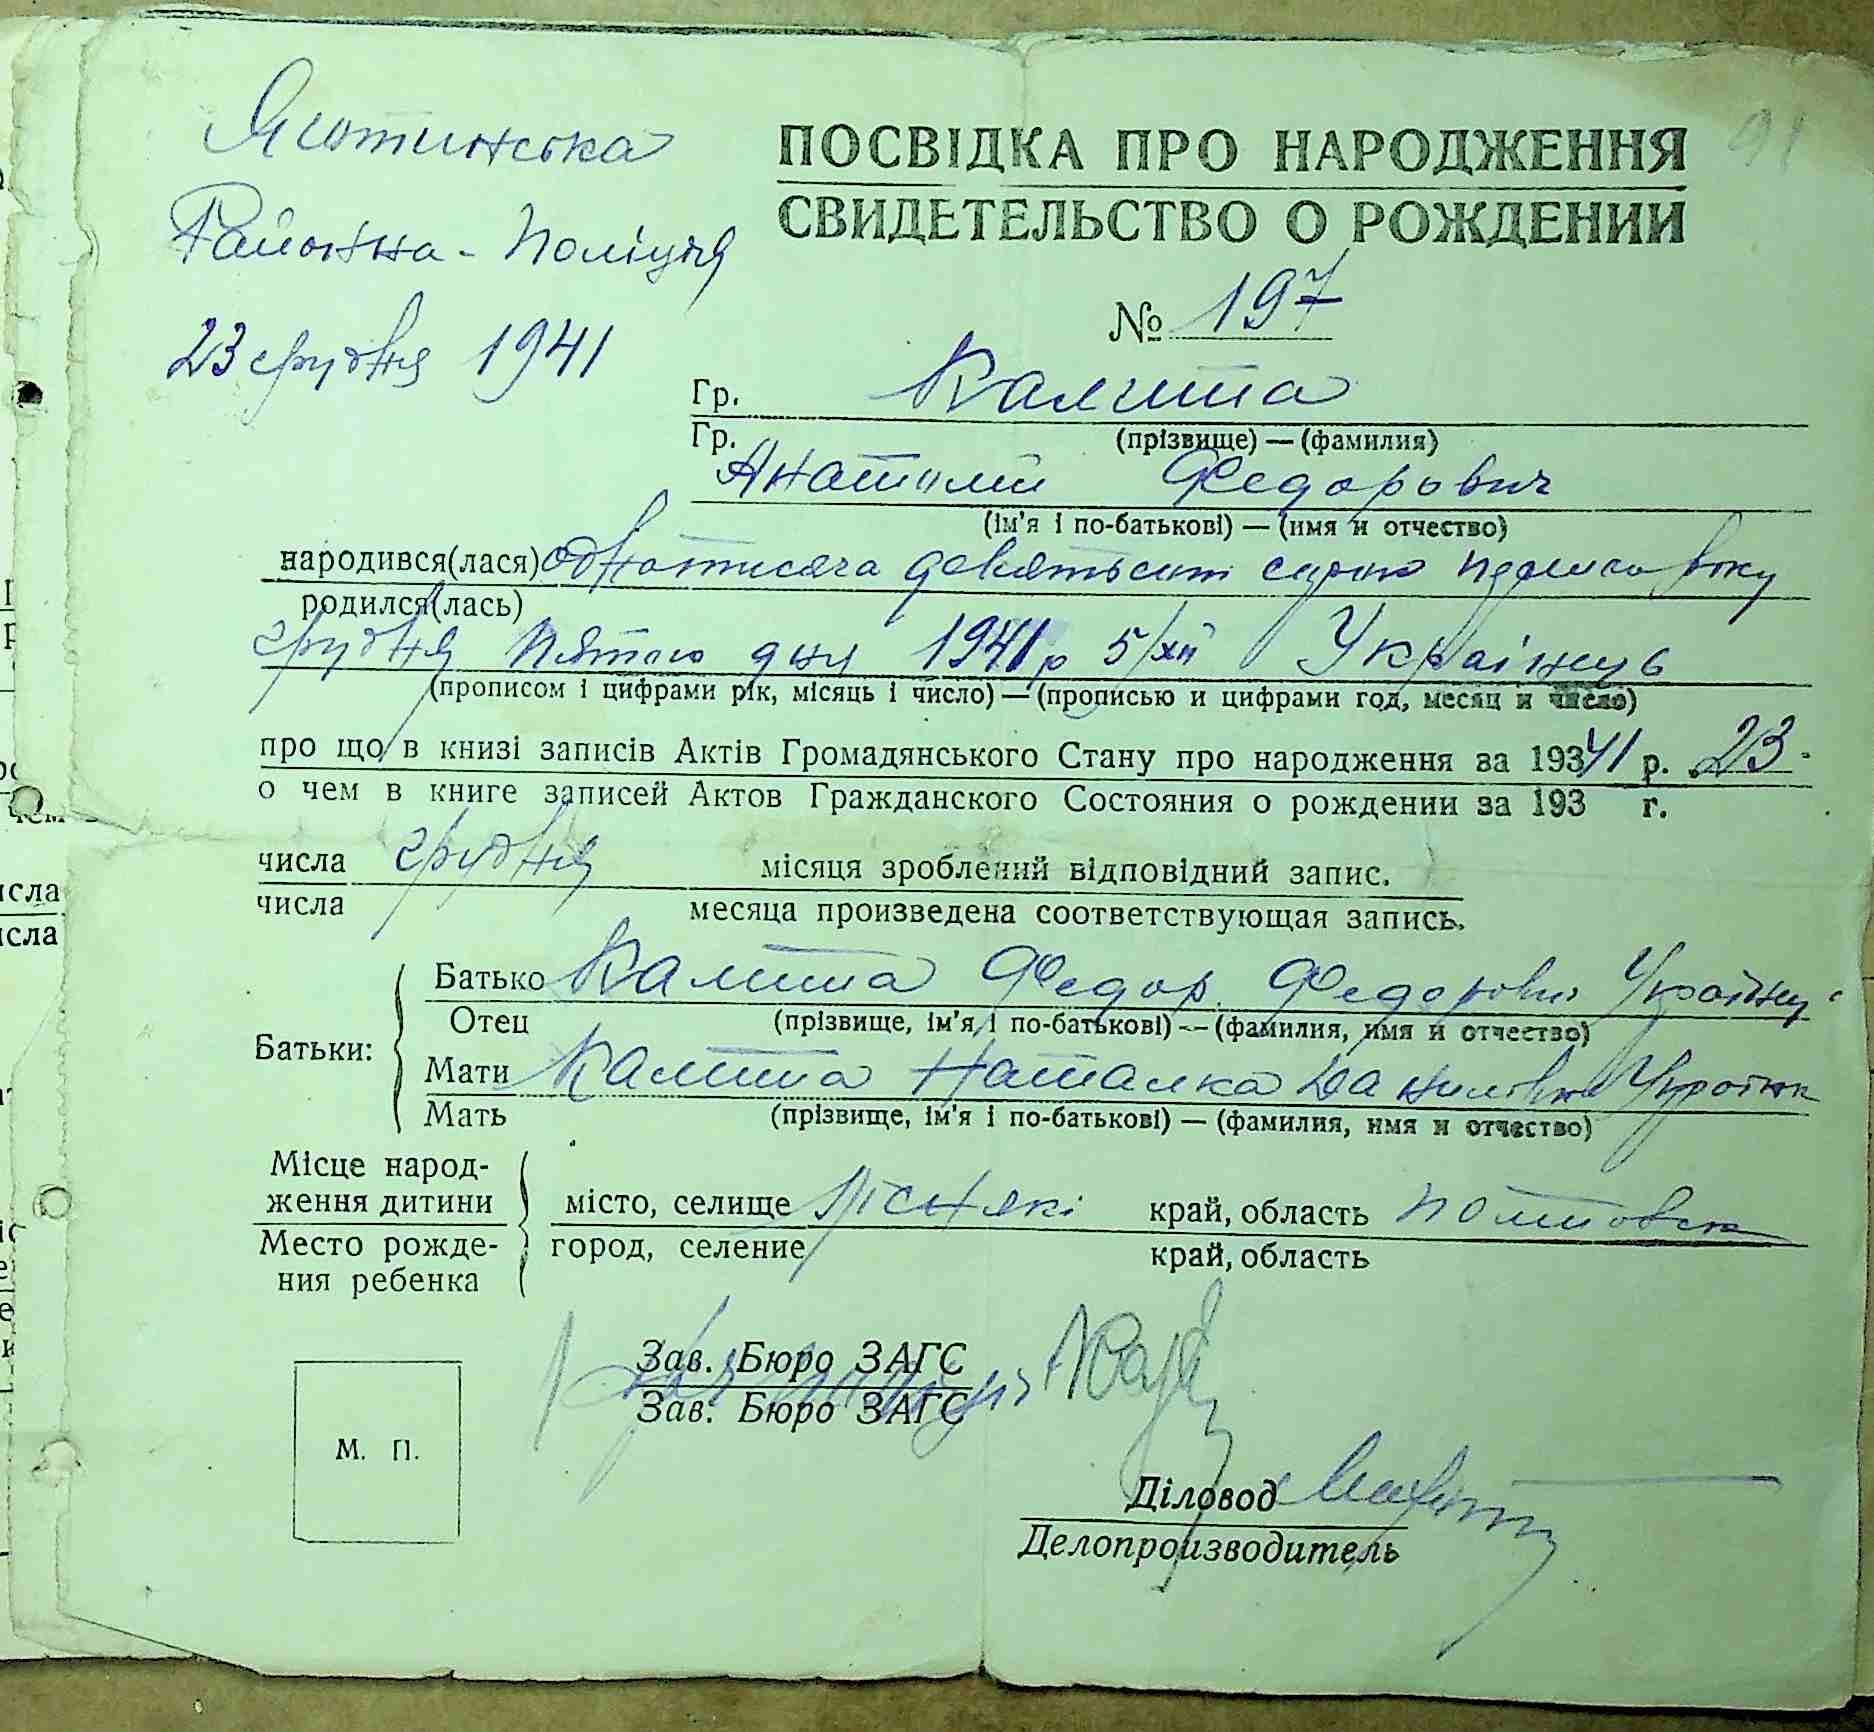 Яготинська
Районна - Поліція
23 грудня 1941
91
ПОСВІДКА ПРО НАРОДЖЕННЯ
СВИДЕТЕЛЬСТВО О РОЖДЕНИИ
№ 197
Гр. Калита
Гр. (прізвище) — (фамилия)
Анатолій Федорович
(ім'я і по-батькові) — (имя и отчество)
народився(лася) однатисяча девятьсот сорок першого року
родился(лась)
грудня пятого дня 1941 р 5/XII Українець
(прописом і цифрами рік, місяць і число) — (прописью и цифрами год, месяц и число)
про що в книзі записів Актів Громадянського Стану про народження за 19341 р. 23
о чем в книге записей Актов Гражданского Состояния о рождении за 193 г.
числа грудня місяця зроблений відповідний запис.
числа месяца произведена соответствующая запись.
Батьки:
Батько Калита Федор Федорович Українець
Отец (прізвище, ім'я і по-батькові) — (фамилия, имя и отчество)
Мати Калита Наталка Даниловна Українк
Мать (прізвище, ім'я і по-батькові) — (фамилия, имя и отчество)
Місце народ-
ження дитини місто, селище Лісняки край, область Полтавск
Место рожде- город, селение край, область
ния ребенка
Зав. Бюро ЗАГС
Зав. Бюро ЗАГС
М. П.
Діловод
Делопроизводитель